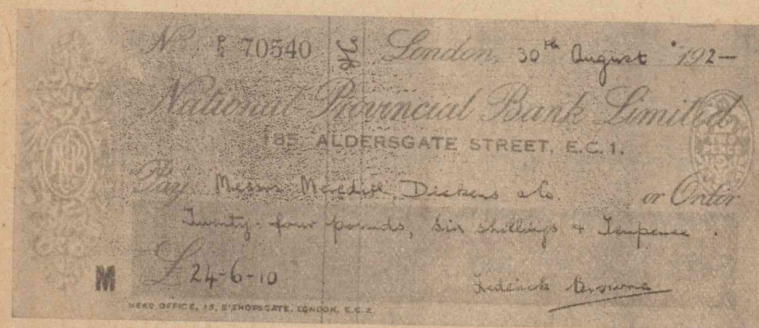 No P/E 70540 London, 30th August 192-
National Provincial Bank Limited
185 ALDERSGATE STREET, E.C.1.
Pay Messrs Meredith, Dickens & Co. or Order
Twenty-four pounds, six shillings & Tenpence.
M £24-6-10 Frederick Browne
HEAD OFFICE, 15, BISHOPSGATE, LONDON, E.C.2.